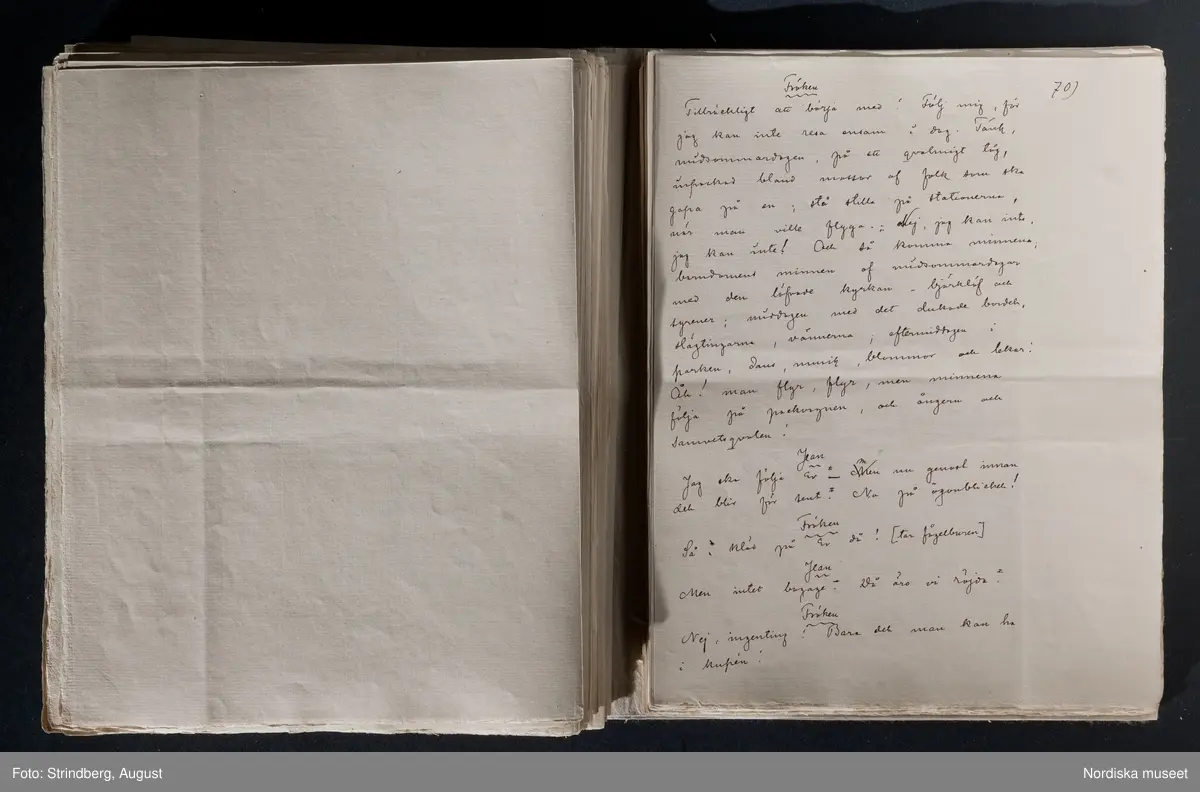 70)
Fröken
Tillräckligt att börja med! Följ mig, för
jag kan inte resa ensam i dag. Tänk,
midsommardagen, på ett qvalmigt tåg,
inpackad bland massor af folk som ska
gapa på en; stå stilla på stationerna,
när man ville flyga. - Nej, jag kan inte,
jag kan inte! Och så komma minnena;
barndomens minnen af midsommardagar
med den löfvade kyrkan - björklöf och
syrener; middagen med det dukade bordet,
slägtingarna, vännerna; eftermiddagen i
parken, dans, musik, blommor och lekar!
Åh! man flyr, flyr, men minnena
följa på packvagnen, och ångern och
samvetsqvalen!
Jean
Jag ska följa Er - men nu genast innan
det blir för sent! Nu på ögonblicket!
Fröken
Så kläd på Er då! [tar fågelburen]
Jean
Men intet bagage! Då äro vi röjda!
Fröken
Nej, ingenting! Bara det man kan ha
i kupén!
Foto: Strindberg, August
Nordiska museet